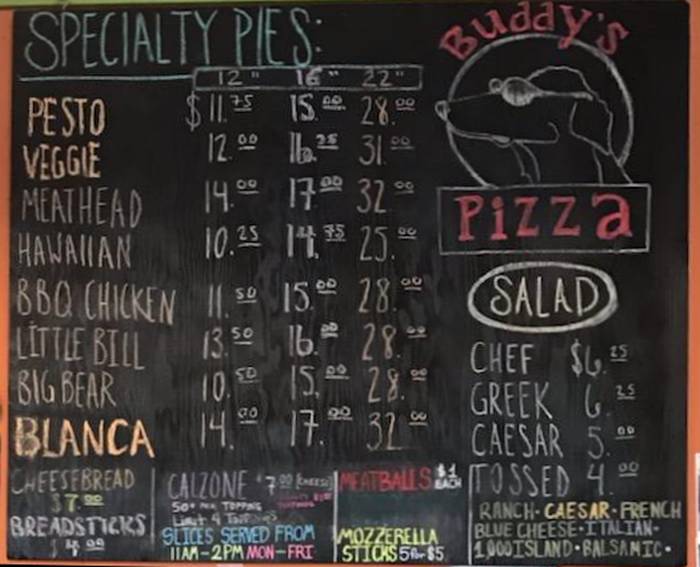 SPECIALTY PIES:
12" 16" 22"
PESTO $11.75 15.00 28.00
VEGGIE 12.00 16.25 31.00
MEATHEAD 14.00 17.00 32.00
HAWAIIAN 10.25 14.75 25.00
BBQ CHICKEN 11.50 15.00 28.00
LITTLE BILL 13.50 16.00 28.00
BIG BEAR 10.50 15.00 28.00
BLANCA 14.00 17.00 32.00
Buddy's
Pizza
SALAD
CHEF $6.25
GREEK 6.25
CAESAR 5.00
TOSSED 4.00
RANCH · CAESAR · FRENCH
BLUE CHEESE · ITALIAN ·
1,000 ISLAND · BALSAMIC ·
CHEESEBREAD
$7.00
BREADSTICKS
$4.00
CALZONE $7.00 (CHEESE)
50¢ PER TOPPING
Limit 4 TOPPINGS
SLICES SERVED FROM
11AM-2PM MON-FRI
MEATBALLS $1 EACH
MOZZERELLA
STICKS 5 for $5